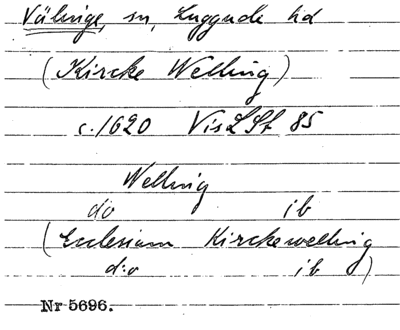 Välinge, sn, Luggude hd
(Kircke Welling)
c. 1620 VisLSt 85
Welling
do ib
(Ecclesiam Kirckewelling
d:o ib)
Nr 5696.